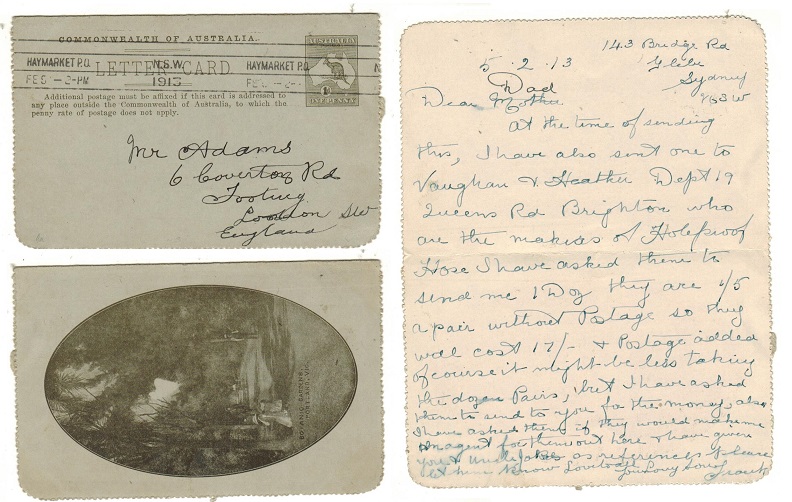 COMMONWEALTH OF AUSTRALIA.
HAYMARKET P.O. N.S.W. HAYMARKET P.O. N
FEB - 2-PM 1913 FEB - 2-
LETTER CARD
AUSTRALIA
ONE PENNY
Additional postage must be affixed if this card is addressed to
any place outside the Commonwealth of Australia, to which the
penny rate of postage does not apply.
Mr Adams
6 Coverton Rd
Tooting
London SW
England
BOTANIC GARDENS,
143 Bridge Rd
Glebe
Sydney
NSW
5.2.13
Dad
Dear Mother
At the time of sending
this, I have also sent one to
Vaughan & Heather Dept 19
Queens Rd Brighton who
are the makers of Holeproof
Hose I have asked them to
send me 1 Doz they are 1/5
a pair without Postage so they
will cost 17/- & Postage added
of course it might be less taking
the dozen Pairs, but I have asked
them to send to you for the money, also
I have asked them if they would make me
an agent for them out here & have given
you & Uncle as references Please
let them know Love to all
Your Loving Son
Frank